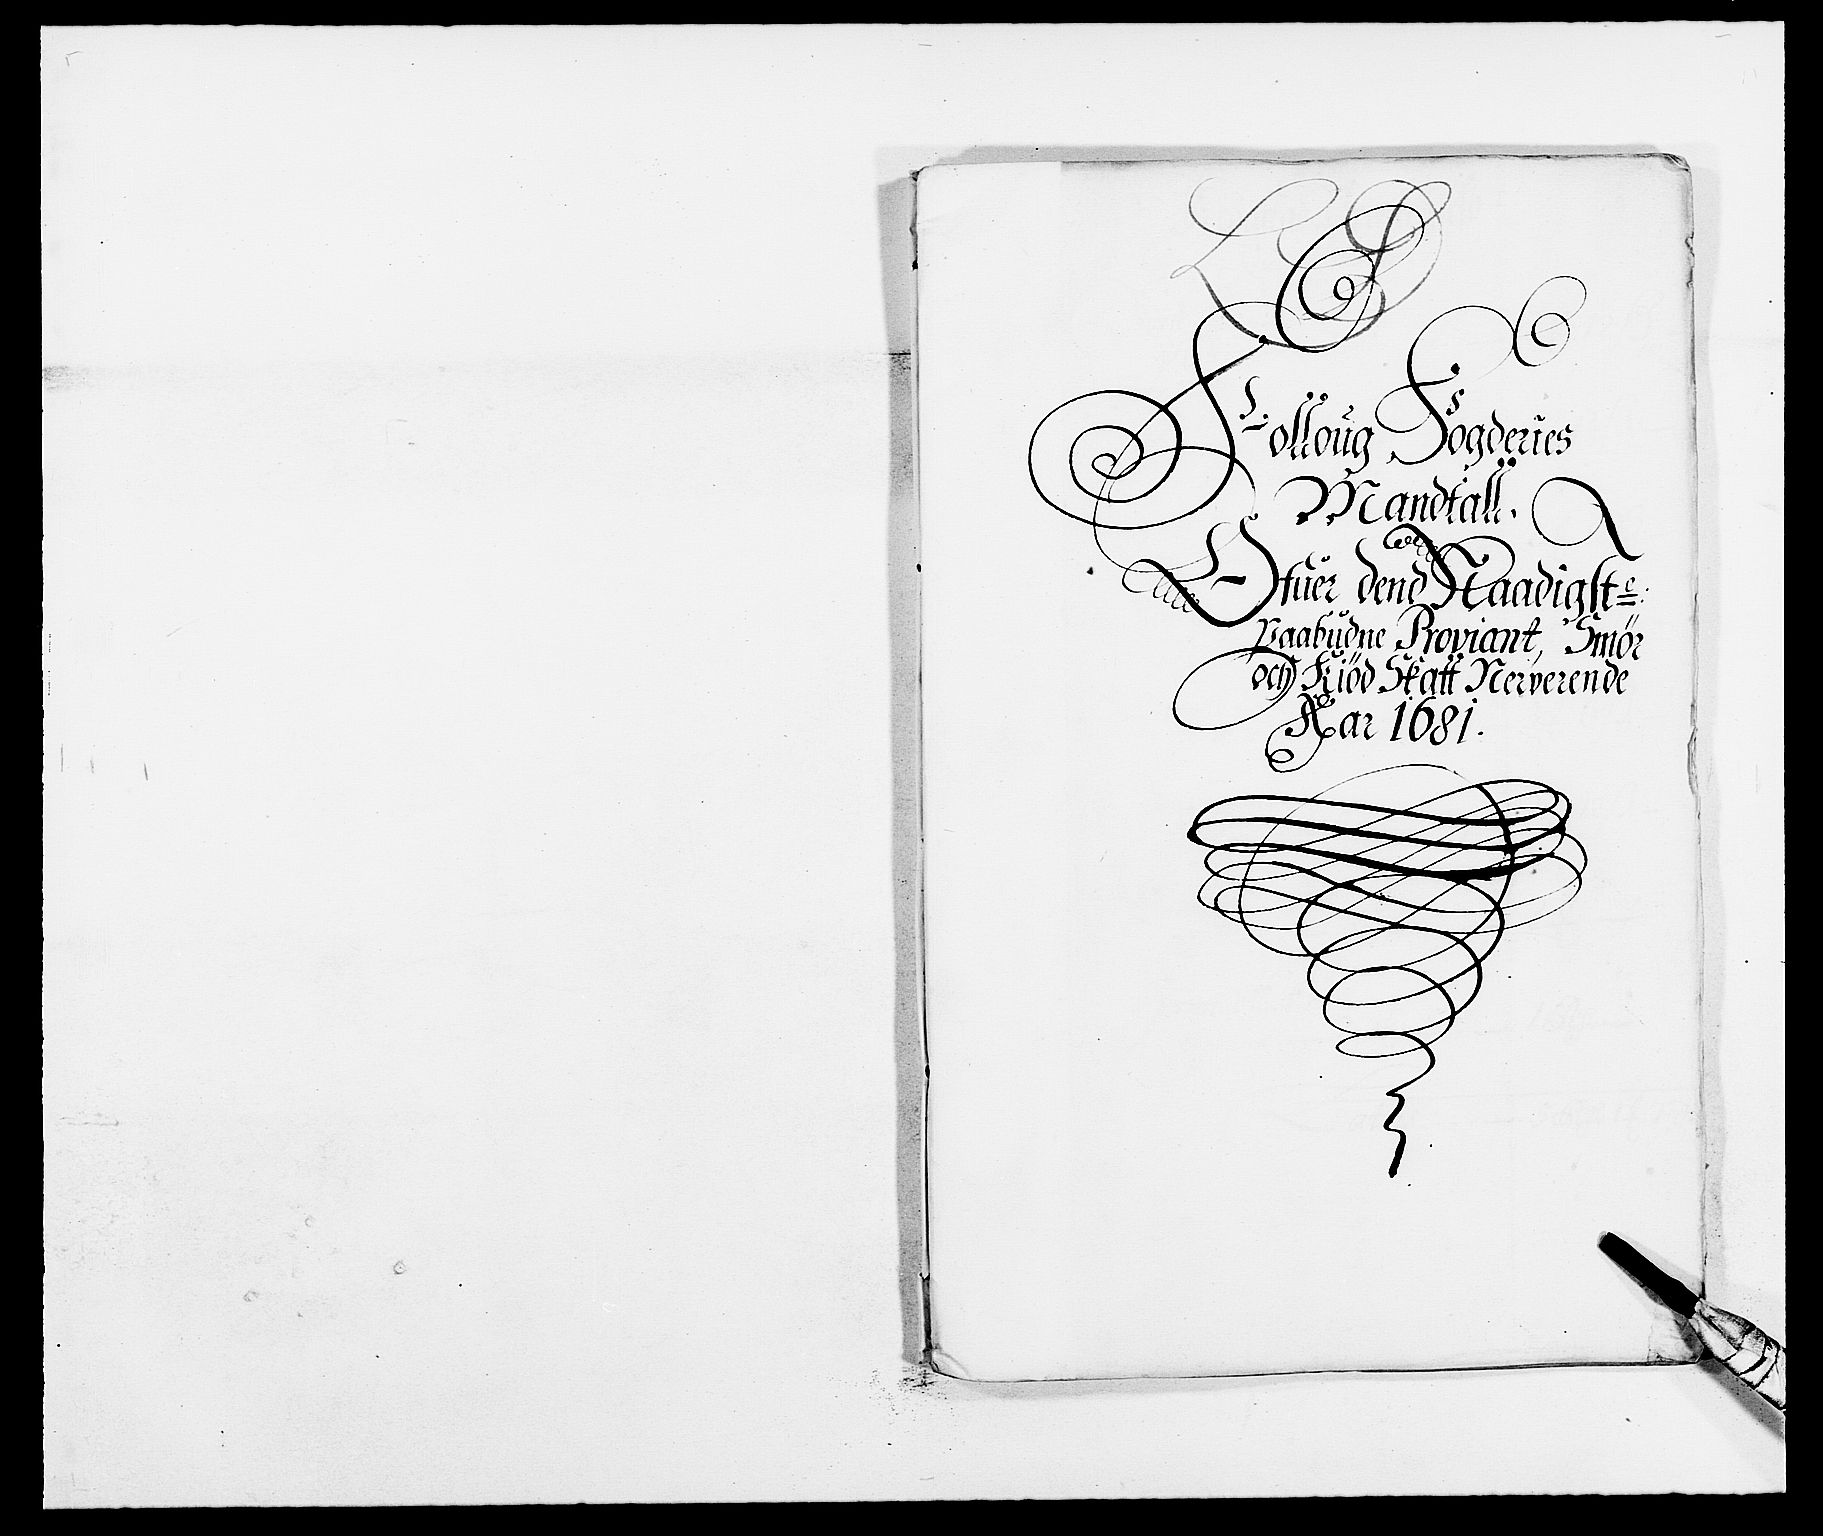 Folloug Fogderies
Mandtall.
Ofuer dend Naadigste
Paabudne Proviant, Smör
och Kiöd Skatt Nerverende
Aar 1681.